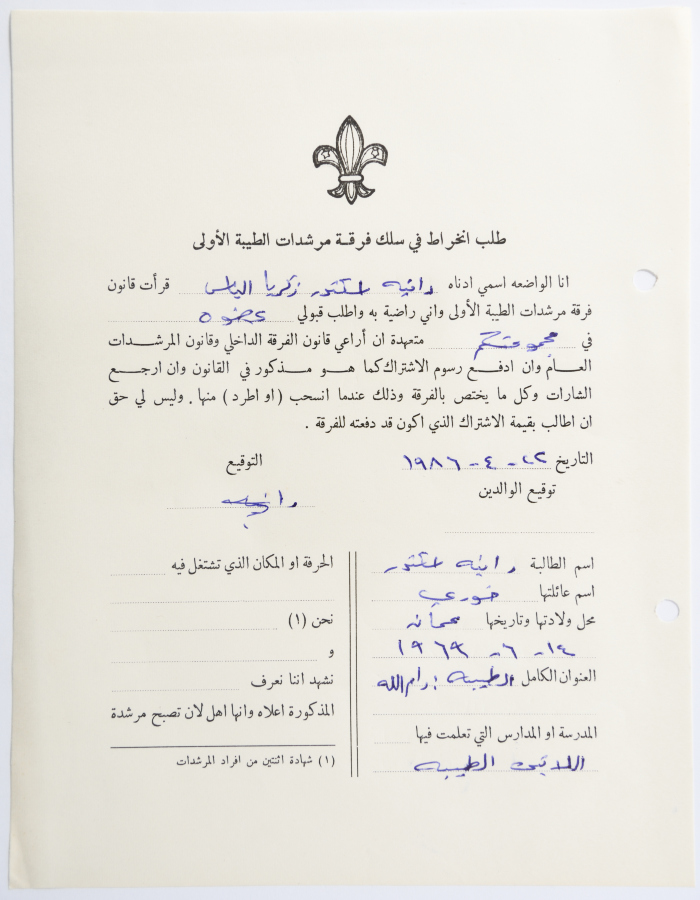 طلب انخراط في سلك فرقة مرشدات الطيبة الأولى
انا الواضعه اسمي ادناه رانيه اسكندر زكريا الياس قرأت قانون
فرقة مرشدات الطيبة الأولى واني راضية به واطلب قبولي عضوه
في مجموعتكم متعهدة ان أراعي قانون الفرقة الداخلي وقانون المرشدات
العام وان ادفع رسوم الاشتراك كما هو مذكور في القانون وان ارجع
الشارات وكل ما يختص بالفرقة وذلك عندما انسحب (او اطرد) منها . وليس لي حق
ان اطالب بقيمة الاشتراك الذي اكون قد دفعته للفرقة .
التاريخ ٢٢ - ٤ - ١٩٨٦
التوقيع
رانيه
توقيع الوالدين
اسم الطالبة رانيه اسكندر
اسم عائلتها خوري
محل ولادتها وتاريخها عمان
١٤ - ٦ - ١٩٦٩
العنوان الكامل الطيبه : رام الله
المدرسة او المدارس التي تعلمت فيها
اللاتين الطيبه
الحرفة او المكان الذي تشتغل فيه
نحن (١)
و
نشهد اننا نعرف
المذكورة اعلاه وانها اهل لان تصبح مرشدة
(١) شهادة اثنتين من افراد المرشدات